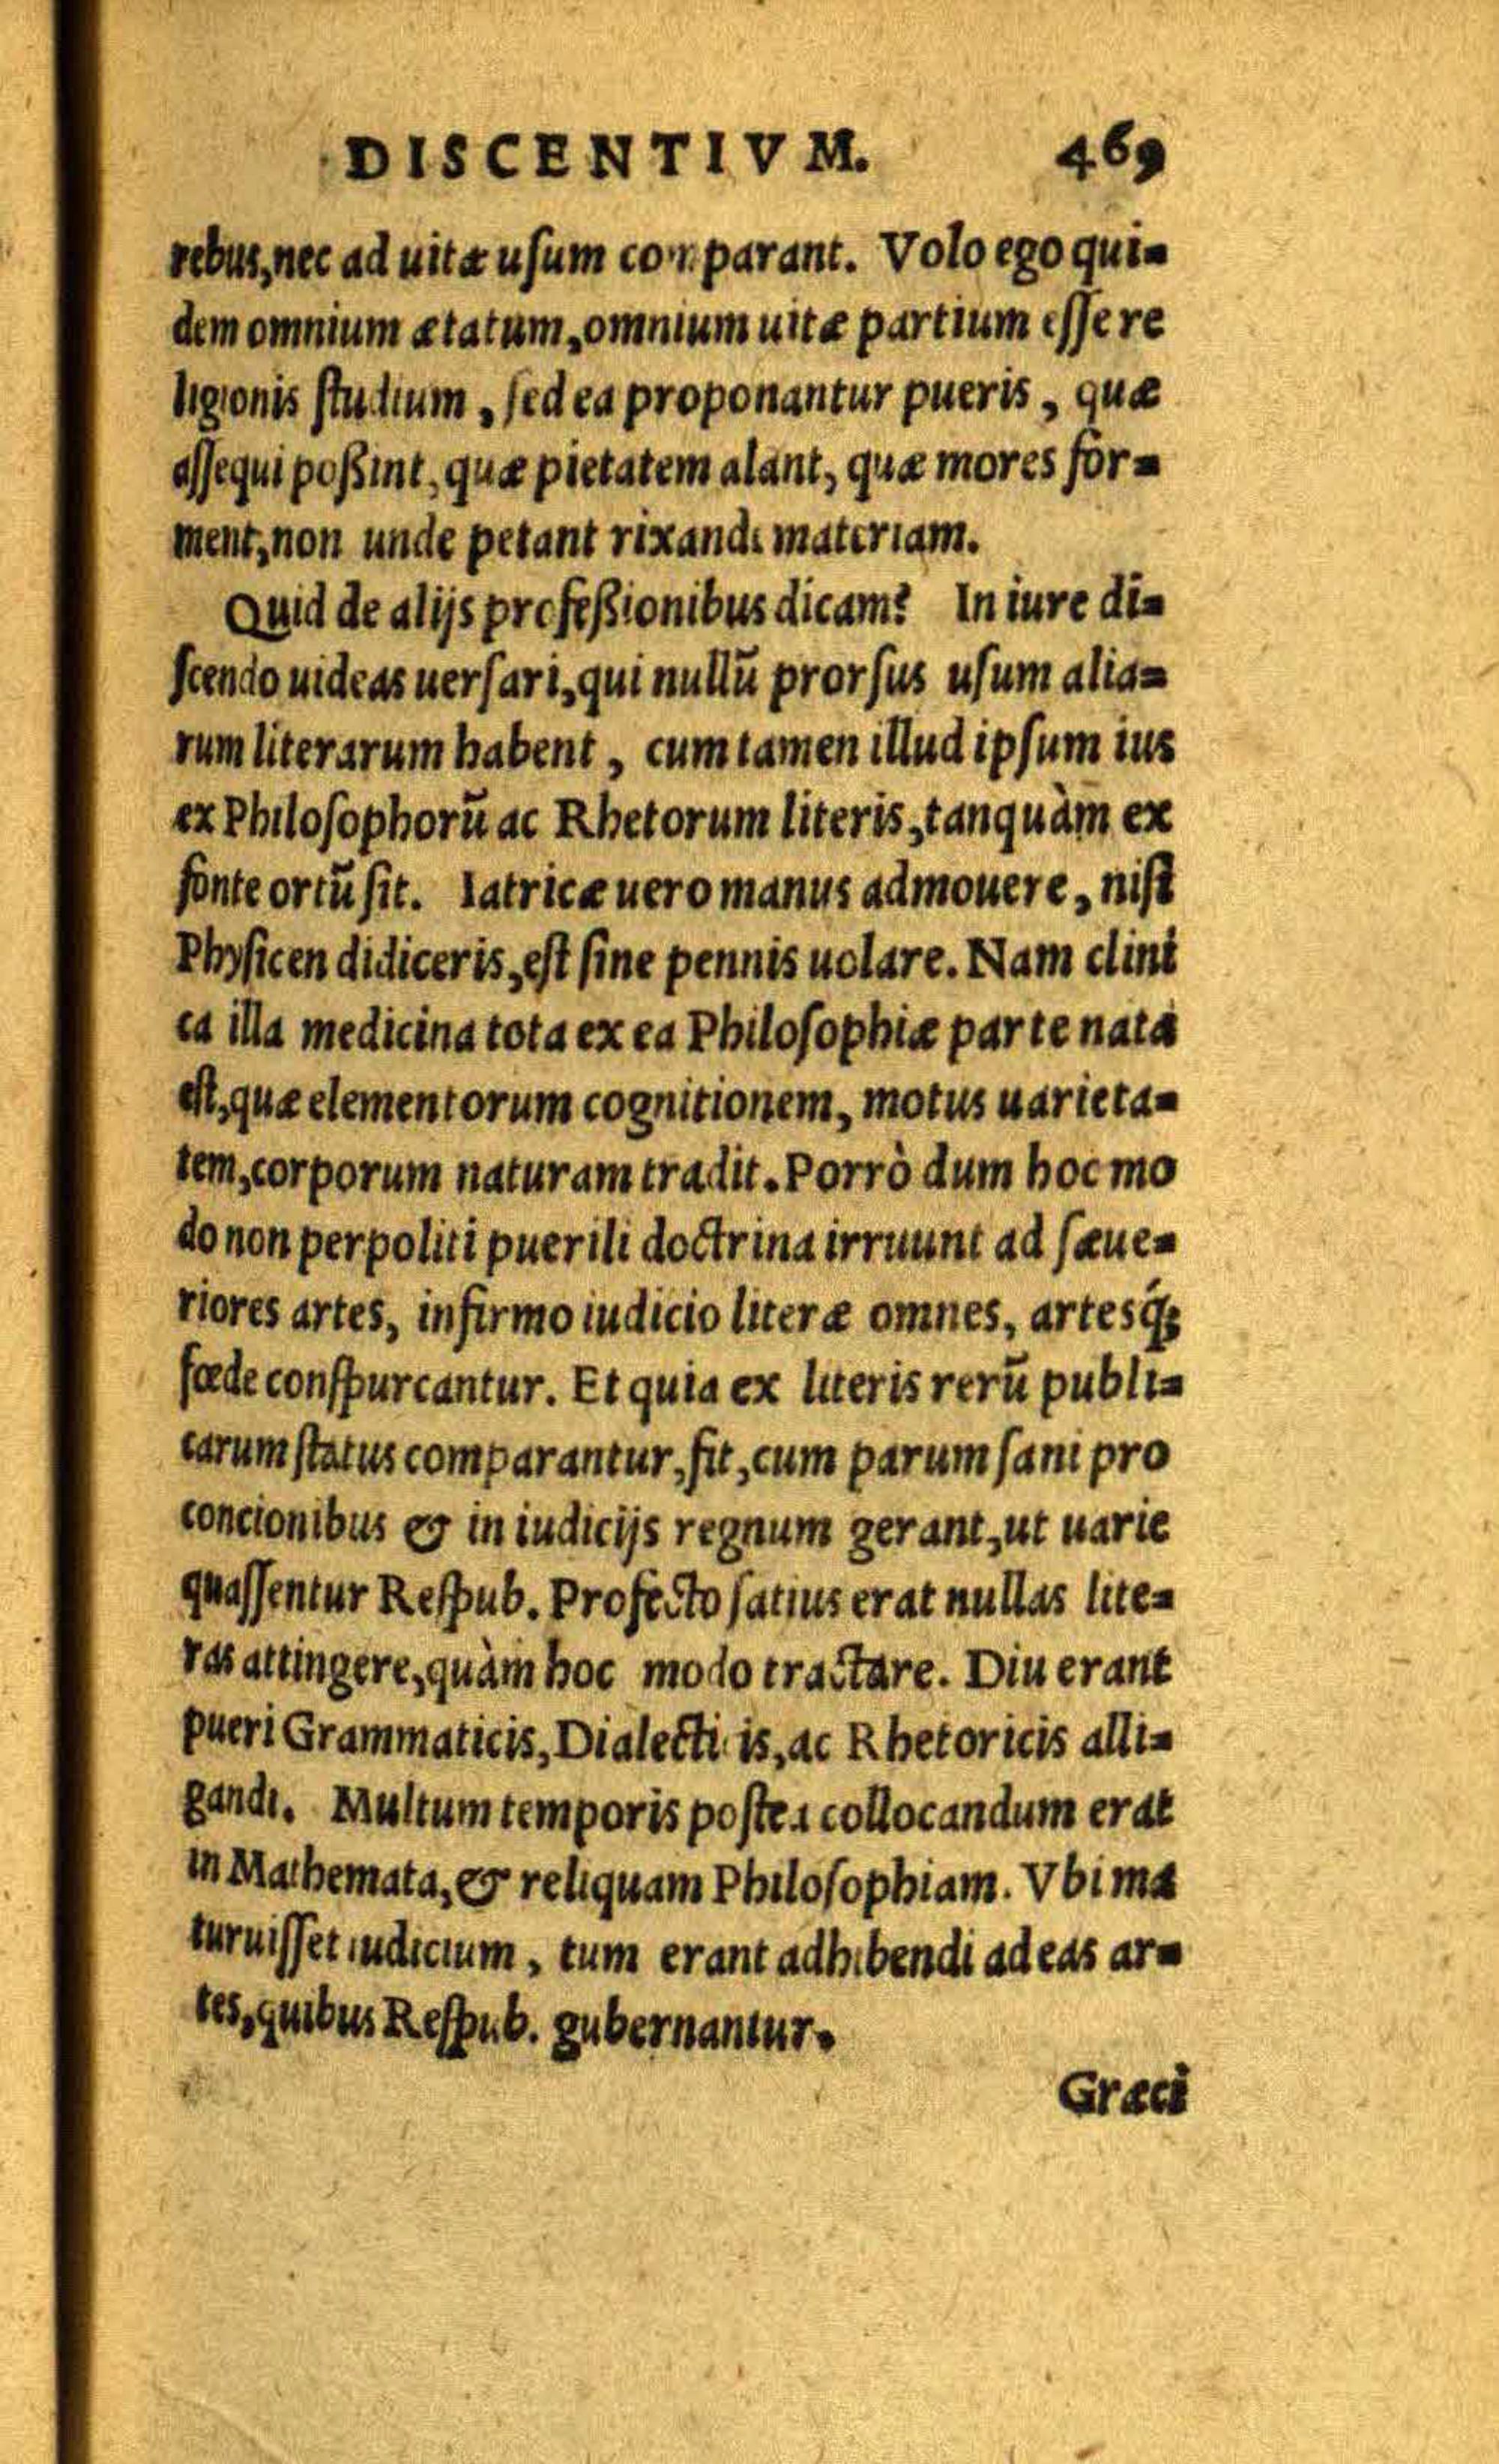 DISCENTIVM. 469
rebus, nec ad uitæ uſum comparant. Volo ego qui-
dem omnium ætatum, omnium uitæ partium eſſe re
ligionis ſtudium, ſed ea proponantur pueris, quæ
aſſequi poßint, quæ pietatem alant, quæ mores for-
ment, non unde petant rixandi materiam.
Quid de alijs profeßionibus dicam? In iure di-
ſcendo uideas uerſari, qui nullũ prorſus uſum alia-
rum literarum habent, cum tamen illud ipſum ius
ex Philoſophorũ ac Rhetorum literis, tanquàm ex
fonte ortũ ſit. Iatricæ uero manus admouere, niſi
Phyſicen didiceris, eſt ſine pennis uolare. Nam clini
ca illa medicina tota ex ea Philoſophiæ parte nata
eſt, quæ elementorum cognitionem, motus uarieta-
tem, corporum naturam tradit. Porrò dum hoc mo
do non perpoliti puerili doctrina irruunt ad ſæue-
riores artes, infirmo iudicio literæ omnes, artesq́;
fœde conſpurcantur. Et quia ex literis rerũ publi-
carum ſtatus comparantur, fit, cum parum ſani pro
concionibus & in iudicijs regnum gerant, ut uarie
quaſſentur Reſpub. Profecto ſatius erat nullas lite-
ras attingere, quàm hoc modo tractare. Diu erant
pueri Grammaticis, Dialecticis, ac Rhetoricis alli-
gandi. Multum temporis poſtea collocandum erat
in Mathemata, & reliquam Philoſophiam. Vbi ma
turuiſſet iudicium, tum erant adhibendi ad eas ar-
tes, quibus Reſpub. gubernantur.
Græci